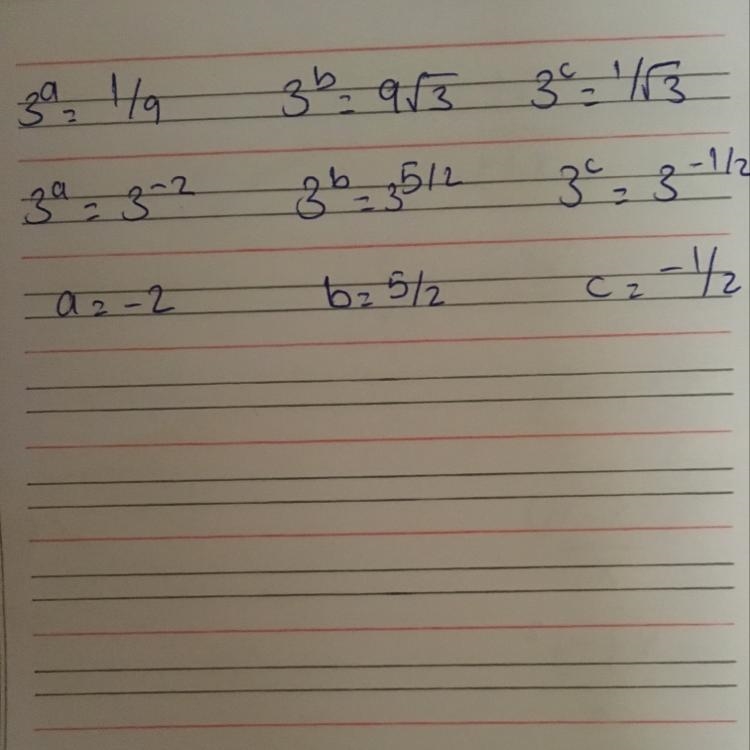 3^a = 1/9 3^b = 9√3 3^c = 1/√3
3^a = 3^-2 3^b = 3^5/2 3^c = 3^-1/2
a = -2 b = 5/2 c = -1/2